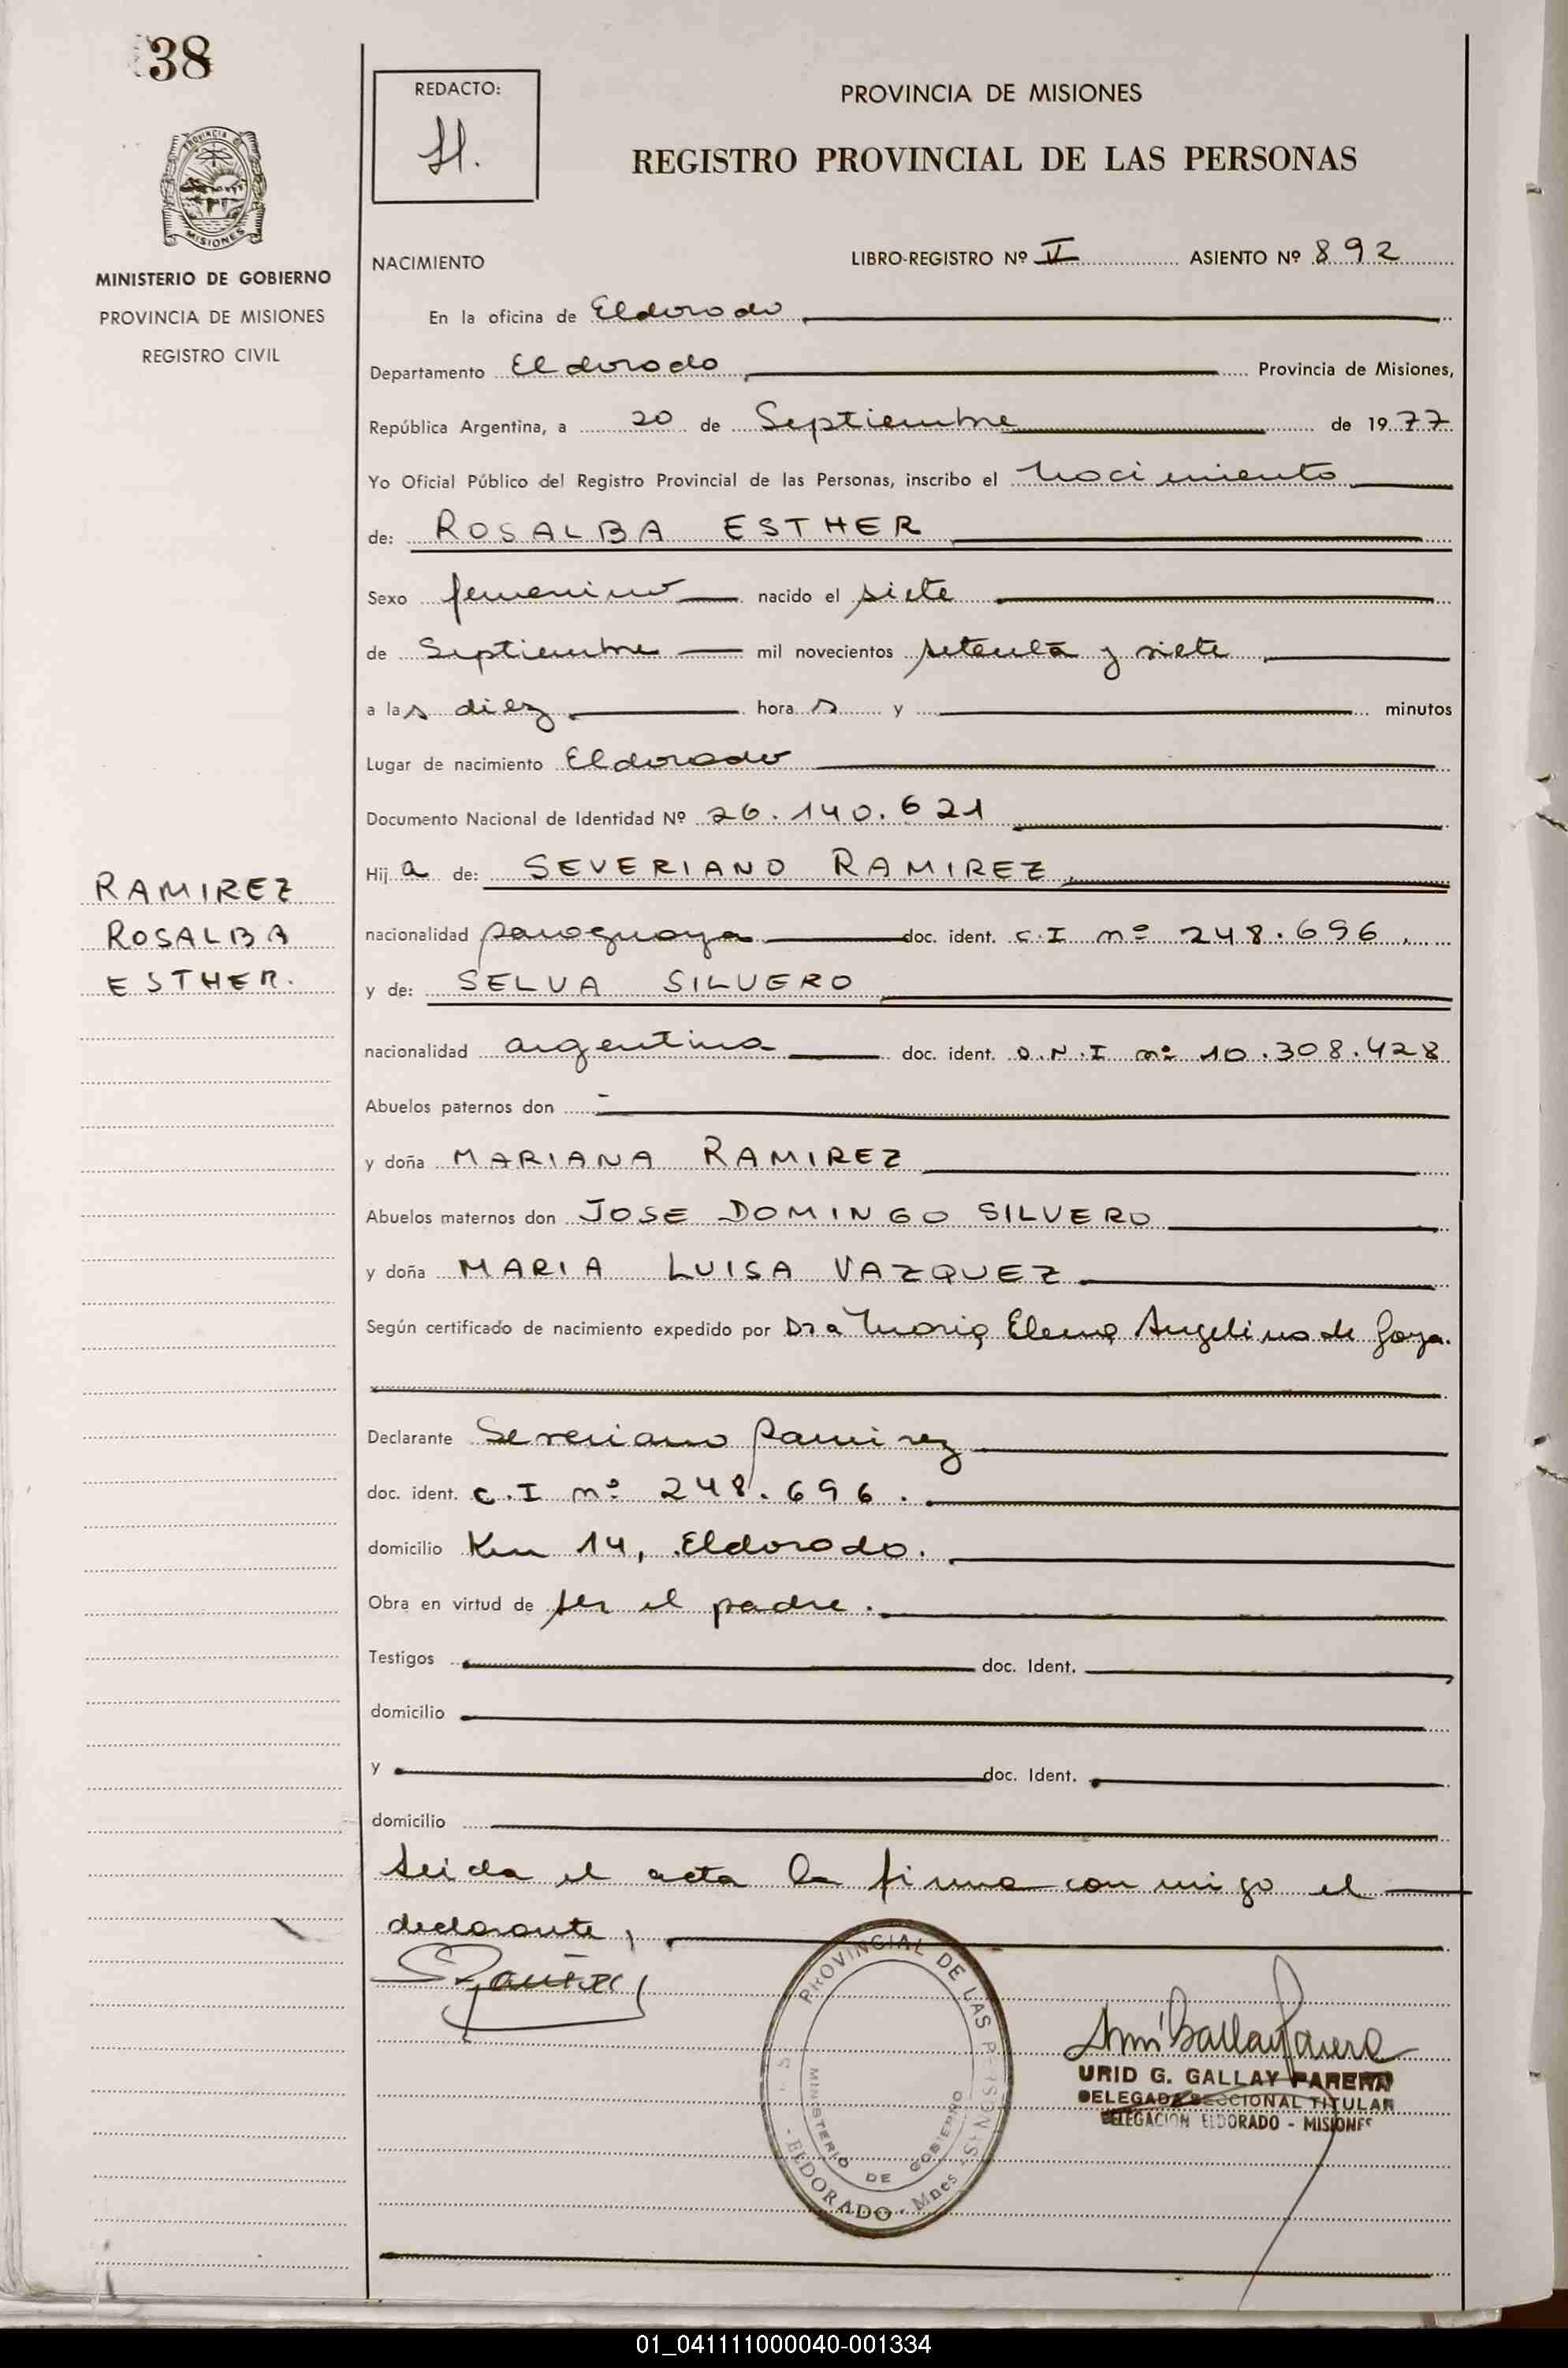 38
REDACTO:
H.
PROVINCIA DE MISIONES
REGISTRO PROVINCIAL DE LAS PERSONAS
PROVINCIA DE
MISIONES
MINISTERIO DE GOBIERNO
PROVINCIA DE MISIONES
REGISTRO CIVIL
NACIMIENTO LIBRO-REGISTRO Nº V ASIENTO Nº 892
En la oficina de Eldorado
Departamento Eldorado Provincia de Misiones,
República Argentina, a 20 de Septiembre de 1977
Yo Oficial Público del Registro Provincial de las Personas, inscribo el nacimiento
de: ROSALBA ESTHER
Sexo femenino nacido el siete
de Septiembre mil novecientos setenta y siete
a las diez horas y minutos
Lugar de nacimiento Eldorado
Documento Nacional de Identidad Nº 26.140.621
Hija de: SEVERIANO RAMIREZ
RAMIREZ
ROSALBA
ESTHER.
nacionalidad paraguaya doc. ident. C.I nº 248.696.
y de: SELVA SILVERO
nacionalidad argentina doc. ident. D.N.I nº 10.308.428
Abuelos paternos don -
y doña MARIANA RAMIREZ
Abuelos maternos don JOSE DOMINGO SILVERO
y doña MARIA LUISA VAZQUEZ
Según certificado de nacimiento expedido por Dra Maria Elena Angelino de Goya.
Declarante Severiano Ramirez
doc. ident. C.I nº 248.696.
domicilio Km 14, Eldorado.
Obra en virtud de ser el padre.
Testigos doc. Ident.
domicilio
y doc. Ident.
domicilio
Leida el acta la firma con migo el
declarante,
PROVINCIAL DE LAS PERSONAS
MINISTERIO DE GOBIERNO
- ELDORADO - Mnes -
URID G. GALLAY PARERA
DELEGADA SECCIONAL TITULAR
DELEGACIÓN ELDORADO - MISIONES
01_041111000040-001334